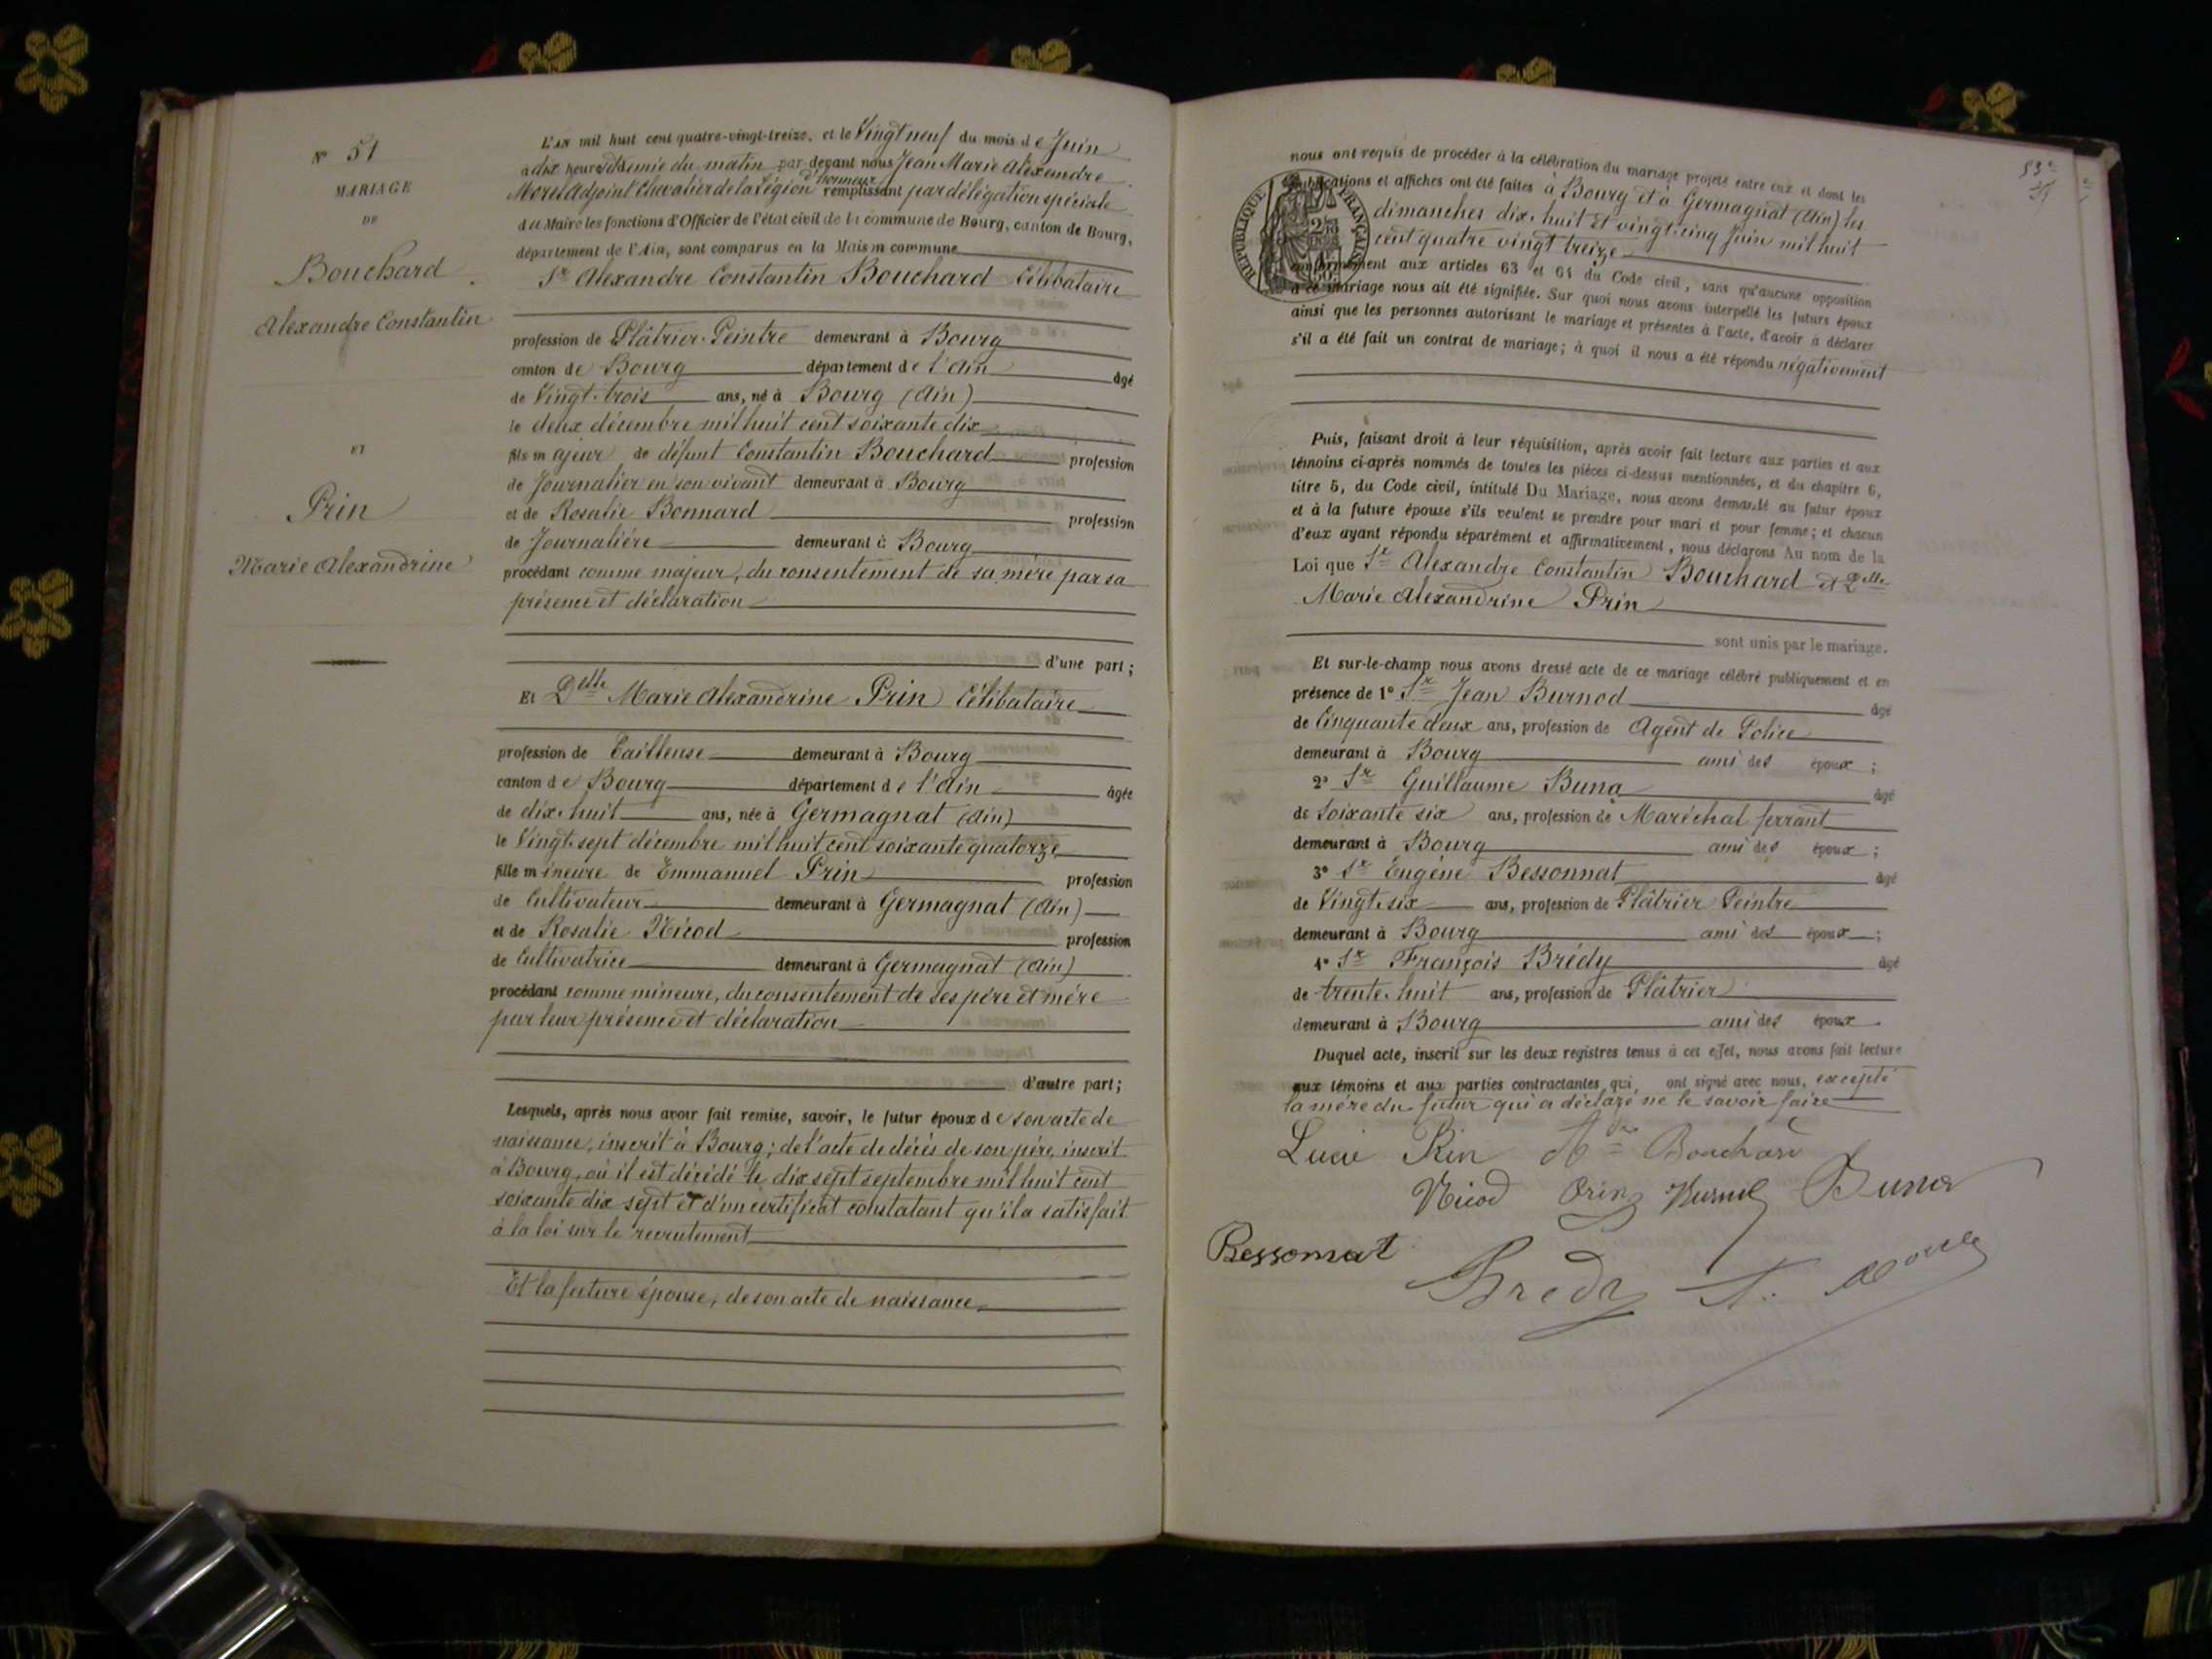 N° 51
MARIAGE
DE
Bouchard
Alexandre Constantin
ET
Prin
Marie Alexandrine
L'AN mil huit cent quatre-vingt-treize, et le Vingt neuf du mois de Juin
à dix heures et demie du matin par-devant nous Jean Marie Alexandre
Morel Adjoint Chevalier de la Légion d'honneur remplissant par délégation spéciale
du Maire les fonctions d'Officier de l'état civil de la commune de Bourg, canton de Bourg,
département de l'Ain, sont comparus en la Maison commune
Sr Alexandre Constantin Bouchard Célibataire
profession de Plâtrier-Peintre demeurant à Bourg
canton de Bourg département de l'Ain âgé
de Vingt-trois ans, né à Bourg (Ain)
le deux décembre mil huit cent soixante dix
fils majeur de défunt Constantin Bouchard profession
de Journalier en son vivant demeurant à Bourg
et de Rosalie Bonnard profession
de Journalière demeurant à Bourg
procédant comme majeur, du consentement de sa mère par sa
présence et déclaration
d'une part;
Et Delle Marie Alexandrine Prin Célibataire
profession de Tailleuse demeurant à Bourg
canton de Bourg département de l'Ain âgée
de dix-huit ans, née à Germagnat (Ain)
le Vingt-sept décembre mil huit cent soixante quatorze
fille mineure de Emmanuel Prin profession
de Cultivateur demeurant à Germagnat (Ain)
et de Rosalie Nicod profession
de Cultivatrice demeurant à Germagnat (Ain)
procédant comme mineure, du consentement de ses père et mère
par leur présence et déclaration
d'autre part;
Lesquels, après nous avoir fait remise, savoir, le futur époux de son acte de
naissance, inscrit à Bourg; de l'acte de décès de son père, inscrit
à Bourg, où il est décédé le dix sept septembre mil huit cent
soixante dix sept et d'un certificat constatant qu'il a satisfait
à la loi sur le recrutement
Et la future épouse, de son acte de naissance
nous ont requis de procéder à la célébration du mariage projeté entre eux et dont les
publications et affiches ont été faites à Bourg et à Germagnat (Ain) les
dimanches dix-huit et vingt-cinq Juin mil huit
cent quatre vingt treize
conformément aux articles 63 et 64 du Code civil, sans qu'aucune opposition
à ce mariage nous ait été signifiée. Sur quoi nous avons interpellé les futurs époux
ainsi que les personnes autorisant le mariage et présentes à l'acte, d'avoir à déclarer
s'il a été fait un contrat de mariage; à quoi il nous a été répondu négativement
RÉPUBLIQUE FRANÇAISE
Puis, faisant droit à leur réquisition, après avoir fait lecture aux parties et aux
témoins ci-après nommés de toutes les pièces ci-dessus mentionnées, et du chapitre 6,
titre 5, du Code civil, intitulé Du Mariage, nous avons demandé au futur époux
et à la future épouse s'ils veulent se prendre pour mari et pour femme; et chacun
d'eux ayant répondu séparément et affirmativement, nous déclarons Au nom de la
Loi que Sr Alexandre Constantin Bouchard et Delle
Marie Alexandrine Prin
sont unis par le mariage.
Et sur-le-champ nous avons dressé acte de ce mariage célébré publiquement et en
présence de 1° Sr Jean Burnod âgé
de Cinquante deux ans, profession de Agent de Police
demeurant à Bourg ami des époux;
2° Sr Guillaume Buna âgé
de Soixante six ans, profession de Maréchal ferrant
demeurant à Bourg ami des époux;
3° Sr Eugène Bessonnat âgé
de Vingt-six ans, profession de Plâtrier Peintre
demeurant à Bourg ami des époux;
4° Sr François Brédy âgé
de trente-huit ans, profession de Plâtrier
demeurant à Bourg ami des époux.
Duquel acte, inscrit sur les deux registres tenus à cet effet, nous avons fait lecture
aux témoins et aux parties contractantes qui ont signé avec nous, excepté
la mère du futur qui a déclaré ne le savoir faire
Prin Bouchard
Nicod Prin Buna
Bessonnat
Bredy